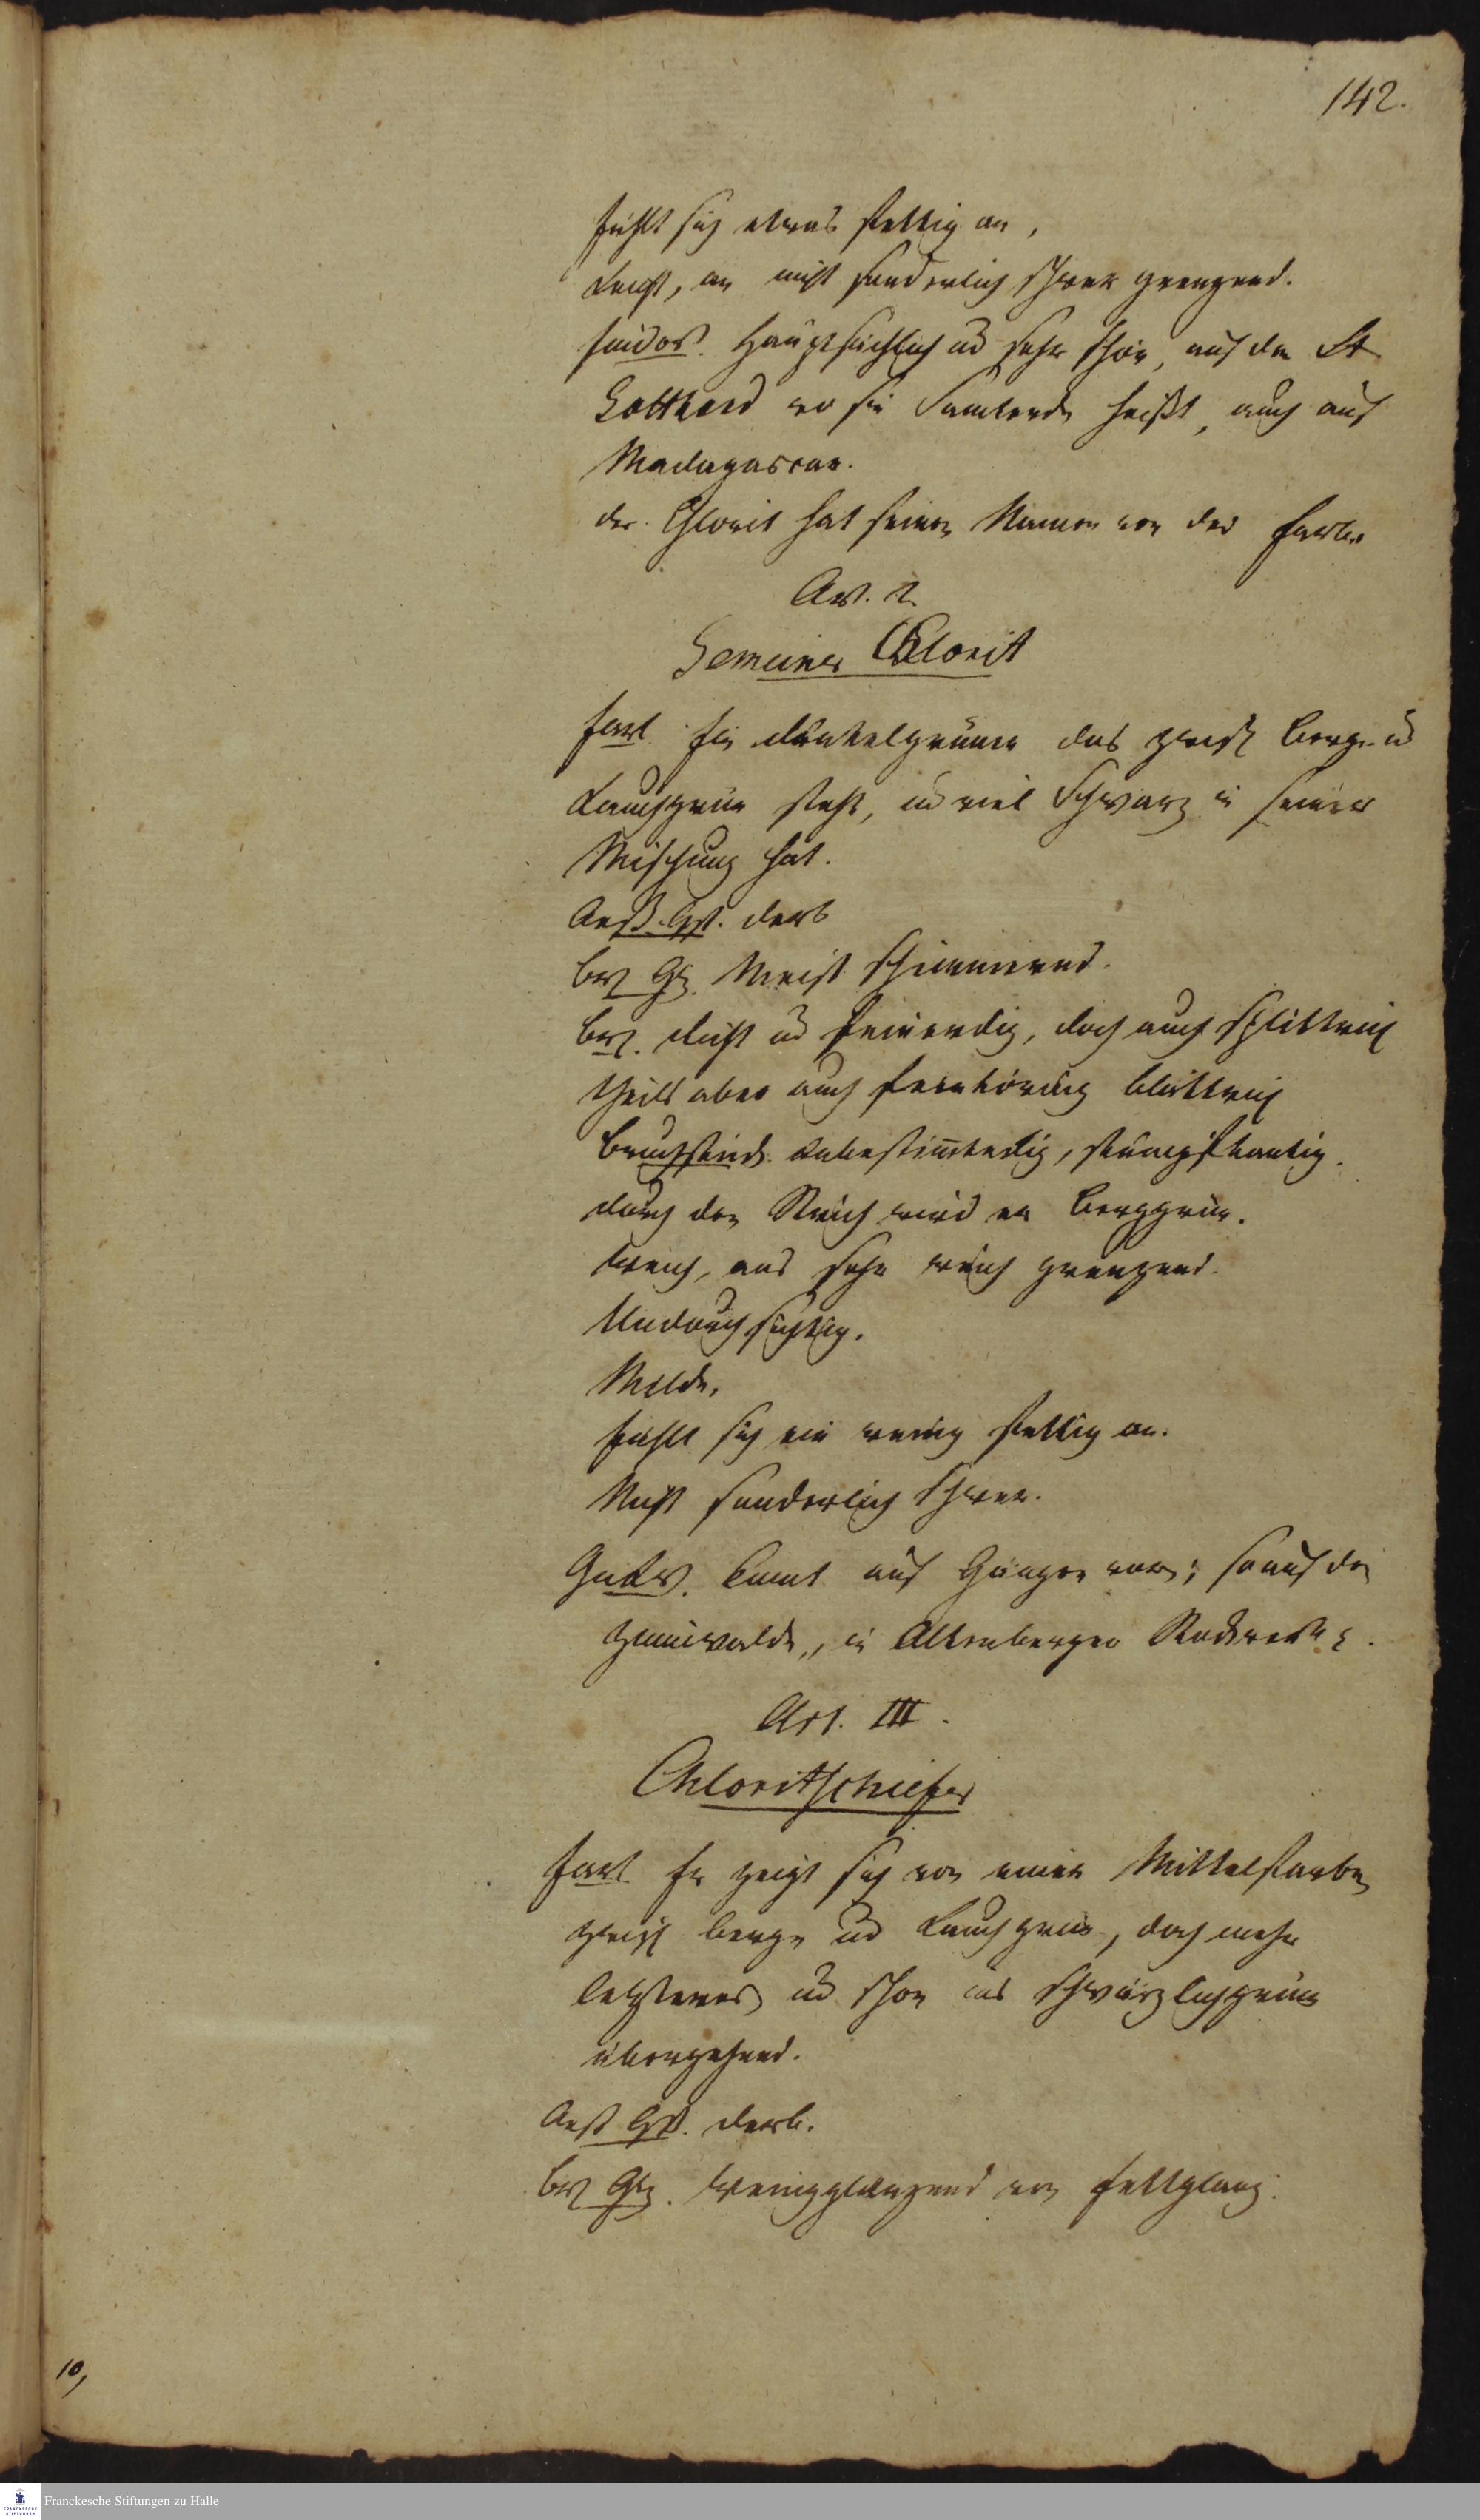 142.
fühlt sich etwas fettig an,
Leicht, an nicht sonderlich schwer grenzend.
findort. Hauptsächlich ud sehr schön, auf dem St
Gotthard wo sie Samterde heißt, auch auf
Madagascar.
der Chlorit hat seinen Namen von der Farbe
Art. 2
Gemeiner Chlorit
farb. Ein dunkelgrünes das zwisch Berg- ud
Lauchgrün steht, ud viel Schwarz in seiner
Mischung hat.
Aeuß. Gst. derb
br Gz. Meist schimmernd.
br. dicht ud feinerdig, doch auch splittrig
theils aber auch feinkörnig blättrig
Bruchstück. unbestimteckig, stumpfkantig.
durch den Strich wird er Berggrün.
Weich, ans sehr weich grenzend.
Undurchsichtig.
Milde,
fühlt sich ein wenig fettig an.
Nicht sonderlich schwer.
Komt auf Gängen vor; so auf dem
Zinnwalde, in Altenberger Stockwerk.
Art. III.
Chloritschiefer
farb. Er zeigt sich von einer Mittelfarbe
zwisch berg- ud Lauchgrün, doch mehr
letzteres ud schon ins schwärzlichgrün
übergehend.
Aeuß Gst. derb.
br Glz. Wenigglänzend von Fettglanz.
10,
Franckesche Stiftungen zu Halle